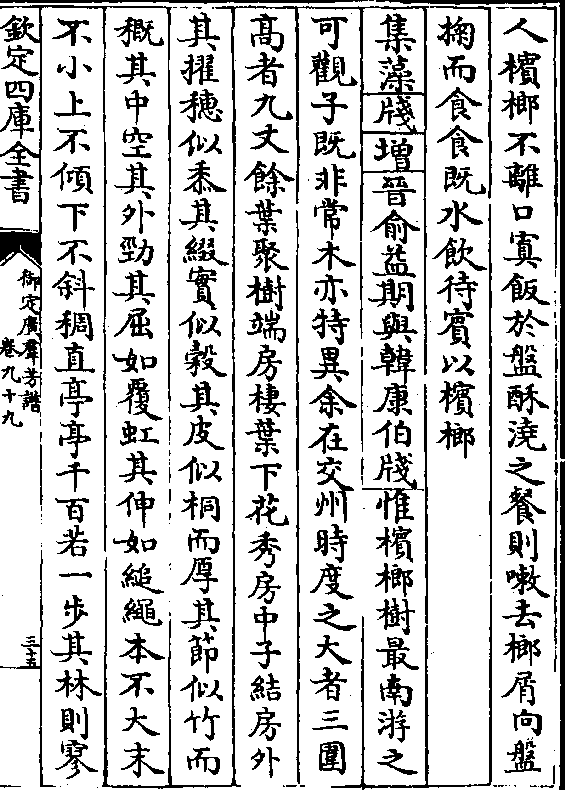 人檳榔不離口寘飯於盤酥澆之餐則嗽去榔屑向盤
掬而食食既水飲待賓以檳榔
集藻牋增晉俞益期與韓康伯牋惟檳榔樹最南游之
可觀子既非常木亦特異余在交州時度之大者三圍
高者九丈餘葉聚樹端房棲葉下花秀房中子結房外
其擢穗似黍其綴實似榖其皮似桐而厚其節似竹而
穊其中空其外勁其屈如覆虹其伸如縋繩本不大末
不小上不傾下不斜稠直亭亭千百若一步其林則寥
欽定四庫全書
御定廣羣芳譜
卷九十九
三十五